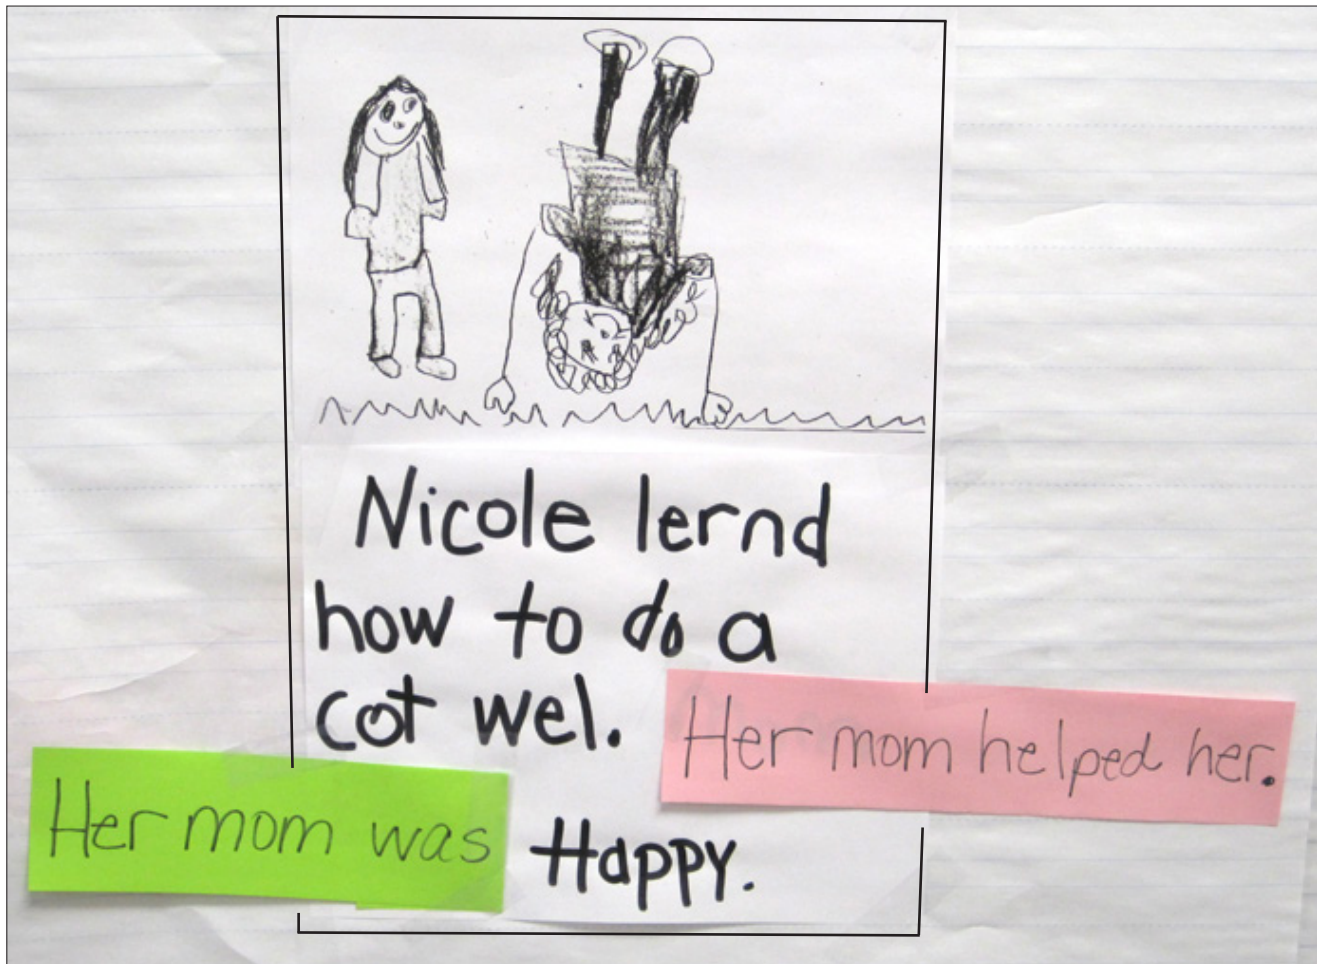 Nicole lernd
how to do a
cot wel.
Her mom helped her.
Her mom was Happy.